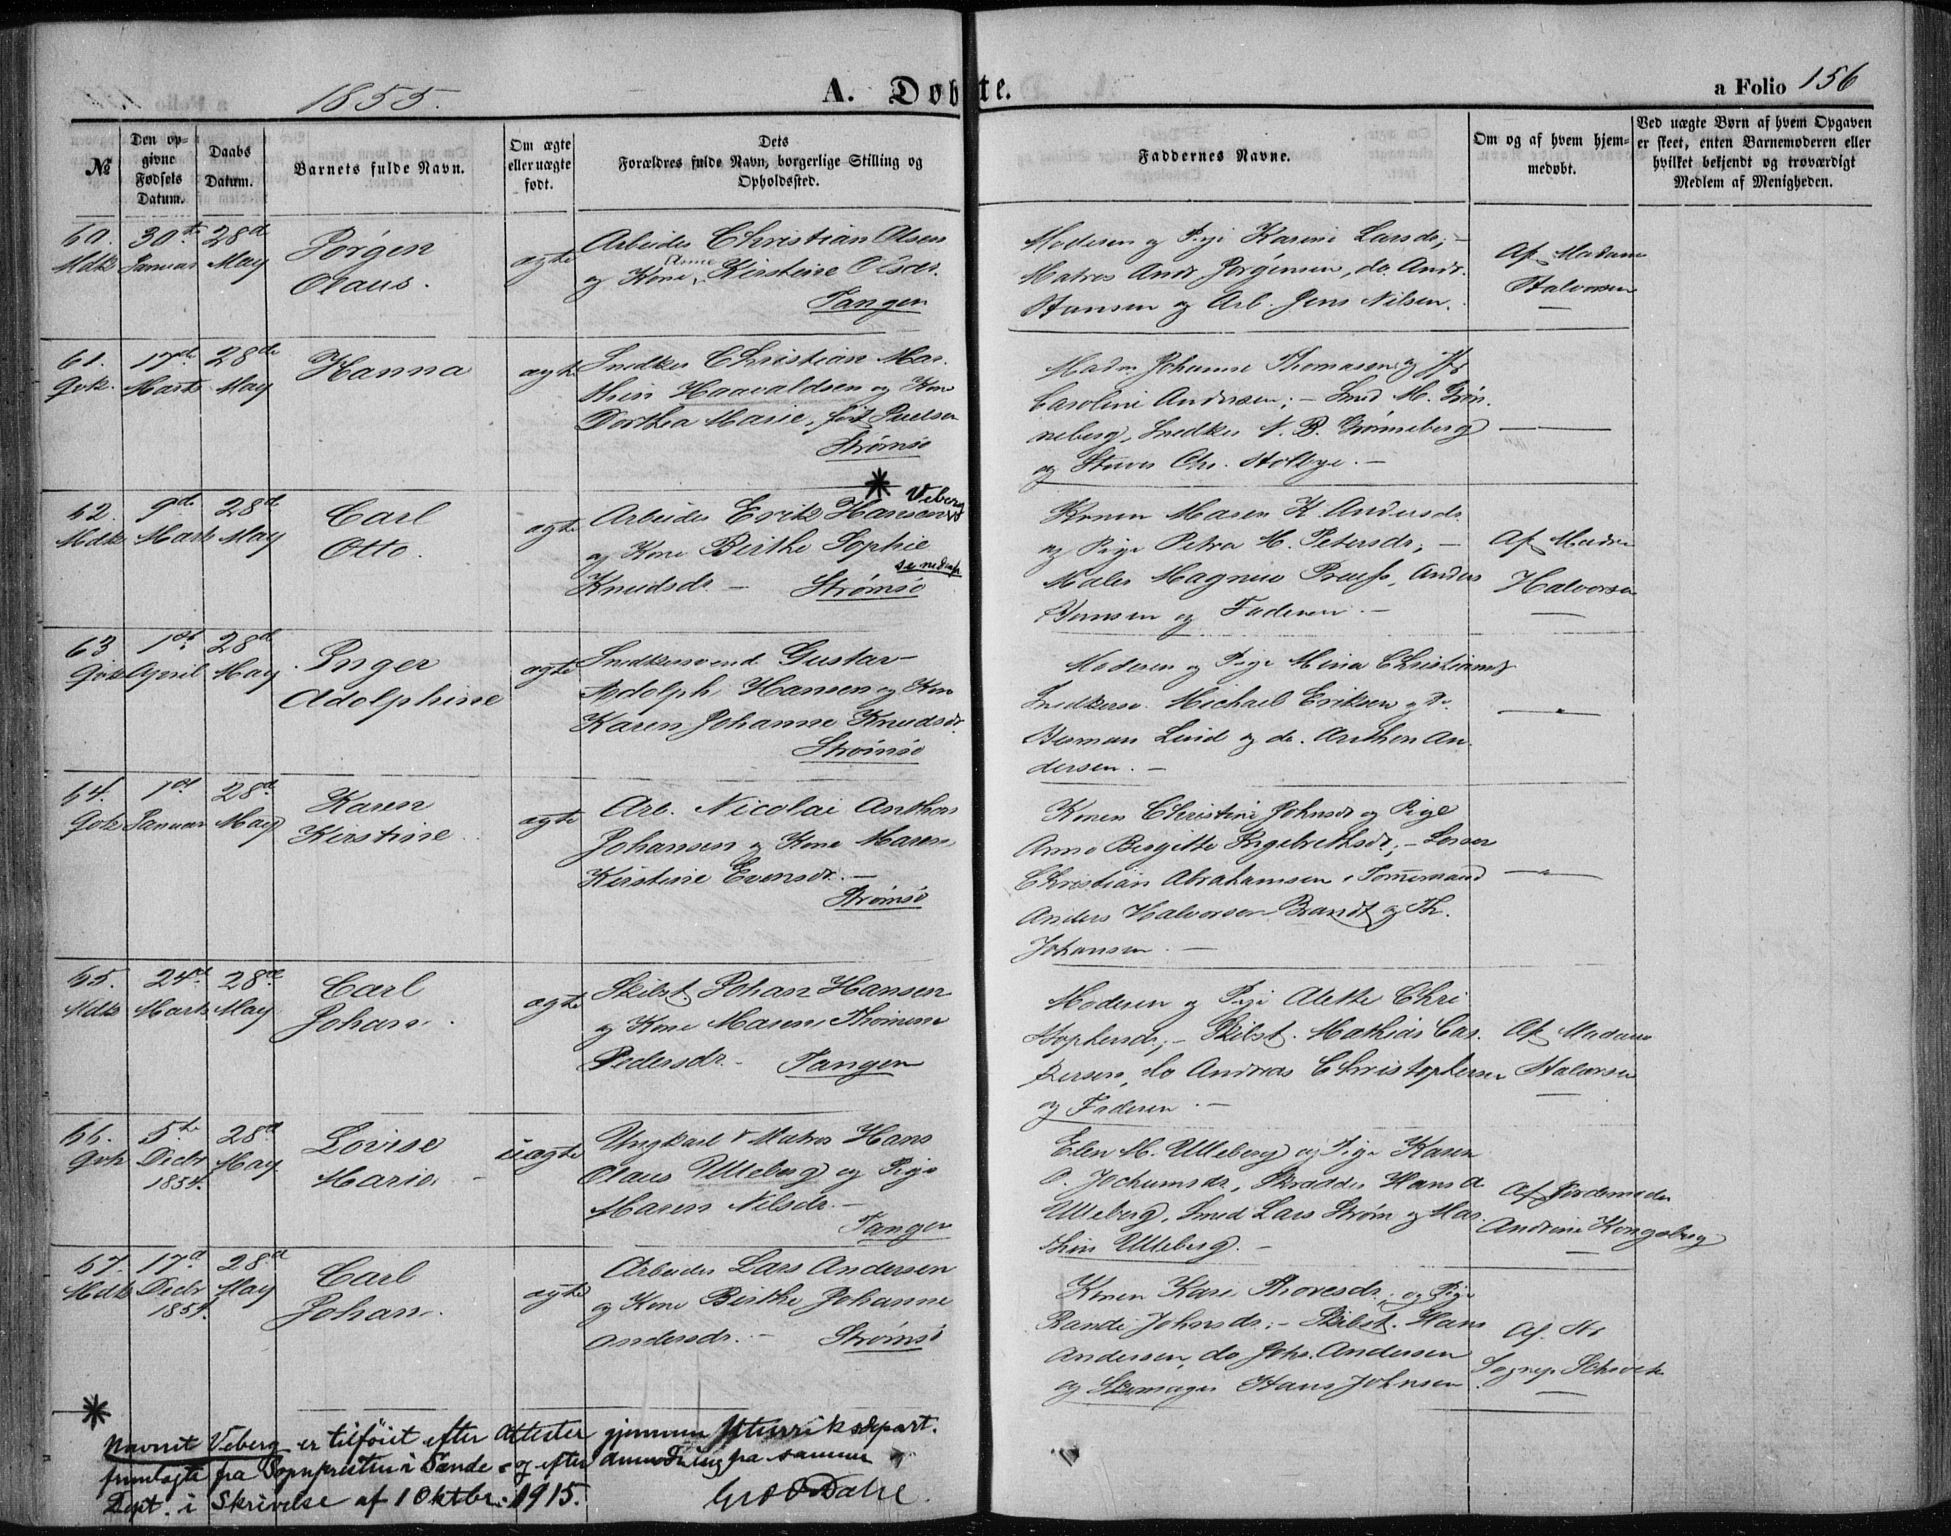 1855.
A. Døbte.
a Folio 156
№
Den opgivne Fødsels Datum.
Daabs Datum.
Barnets fulde Navn.
Om ægte eller uægte født.
Dets Forældres fulde Navn, borgerlige Stilling og Opholdssted.
Faddernes Navne.
Om og af hvem hjemmedøbt.
Ved uægte Børn af hvem Opgaven er skeet, enten Barnemoderen eller hvilket bekjendt og troværdigt Medlem af Menigheden.
60. Mdk
30te Januar
28d May
Jørgen
Olaus.
ægte
Arbeider Christian Olsen
og Kone Anne Kirstine Olsdr.
Tangen
Moderen og Pige Karine Larsdr; –
Matros Andr Jørgensen, do Andr.
Hansen og Arb. Jens Nilsen.
Af Madam
Halvorsen
61. Qvk.
17de Marts
28de May
Hanna
ægte
Snedker Christian Mar-
thin Haavaldsen og Kone
Dorthea Marie, født Puelsen
Strømsø
Madm Johanne Thomasen og Jfr
Caroline Andersen; – Smed M. Grøn-
neberg, Snedker N. B. Grønneberg
og Stuver Chr. Holtye. –
62. Mdk
9de Marts
28de May
Carl
Otto.
ægte
* Veberg
Arbeider Erik Hansen
og Kone Birthe Sophie
se nedenf.
Knudsdr. – Strømsø
Konen Maren K. Andersdr.
og Pige Petra M. Petersdr; –
Maler Magnus Preuss, Anders
Jansen og Faderen. –
Af Madm
Halvorsen
63 Qvk
1ste April
28de May
Inger
Adolphine
ægte
Snedkersvend Gustav
Adolph Hansen og Kone
Karen Johanne Knudsdr.
Strømsø
Moderen og Pige Mina Christiansdr
Snedkersv. Michael Eriksen og do.
Herman Lund og do. Anthon An-
dersen. –
64. Qvk
1ste Januar
28de May
Karen
Kirstine
ægte
Arb. Nicolai Anthon
Johansen og Kone Maren
Kirstine Evensdr. –
Strømsø
Konen Christine Johnsdr og Pige
Anne Birgitte Ingebrethsdr; –
Christian Abrahamsen, Tømmermand
Anders Halvorsen Brandt og Th.
Johansen. –
65. Mdk
24de Marts
28de May
Carl
Johan.
ægte
Skibst. Johan Hansen
og Kone Maren Thomine
Pedersdr – Tangen
Moderen og Pige Alette Chri-
stophersdr; – Skibst. Mathias Cas-
persen, do Andreas Christophersen
og Faderen. –
Af Madam
Halvorsen
66. Qvk
5te Decbr 1854.
28de May
Lovise
Marie.
uægte
Ungkarl & Matros Hans
Olaus Ulleberg og Pige
Maren Nilsdr. –
Tangen
Elen M. Ulleberg og Pige Karen
O. Jochumsdr, Skrædder Hans A
Ulleberg, Smed Lars Strøm og Mar-
thin Ulleberg. –
Af Jordemoder
Andrine Kongsberg
67. Mdk
17d Decbr 1854.
28d May
Carl
Johan.
ægte
Arbeider Lars Andersen
og Kone Birthe Johanne
Andersdr. – Strømsø
Konen Kari Thoresdr. og Pige
Randi Johnsdr; – Skibst. Hans
Andersen, do Johs. Andersen
og Skomager Hans Johnsen
Af Hr
Sognep. Schwek
* Navnet Veberg er tilføiet efter Attester gjennem Utenriksdepart.
fremlagte fra Sognepresten i Sande og efter Anmodning fra samme
Dept. i Skrivelse af 1 Oktbr. 1915.
Dahl.